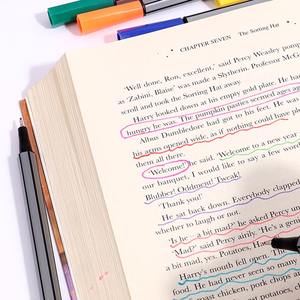 CHAPTER SEVEN The Sorting Hat
'Well done, Ron, excellent,' said Percy Weasley pompously
as 'Zabini, Blaise' was made a Slytherin. Professor McG
scroll and took the Sorting Hat away.
Harry looked down at his empty gold plate. He ha
hungry he was. The pumpkin pasties seemed ages ag
Albus Dumbledore had got to his feet. He was
his arms opened wide, as if nothing could have pl
them all there.
'Welcome!' he said. 'Welcome to a new year
our banquet, I would like to say a few words
Blubber! Oddment! Tweak!
'Thank you!'
He sat back down. Everybody clapped
whether to laugh or not.
'Is he – a bit mad?' he asked Percy un
'Mad?' said Percy airily. 'He's a geni
a bit mad, yes. Potatoes, Ha
Harry's mouth fell open. The
food. He had never seen so many
roast chicken, pork chops